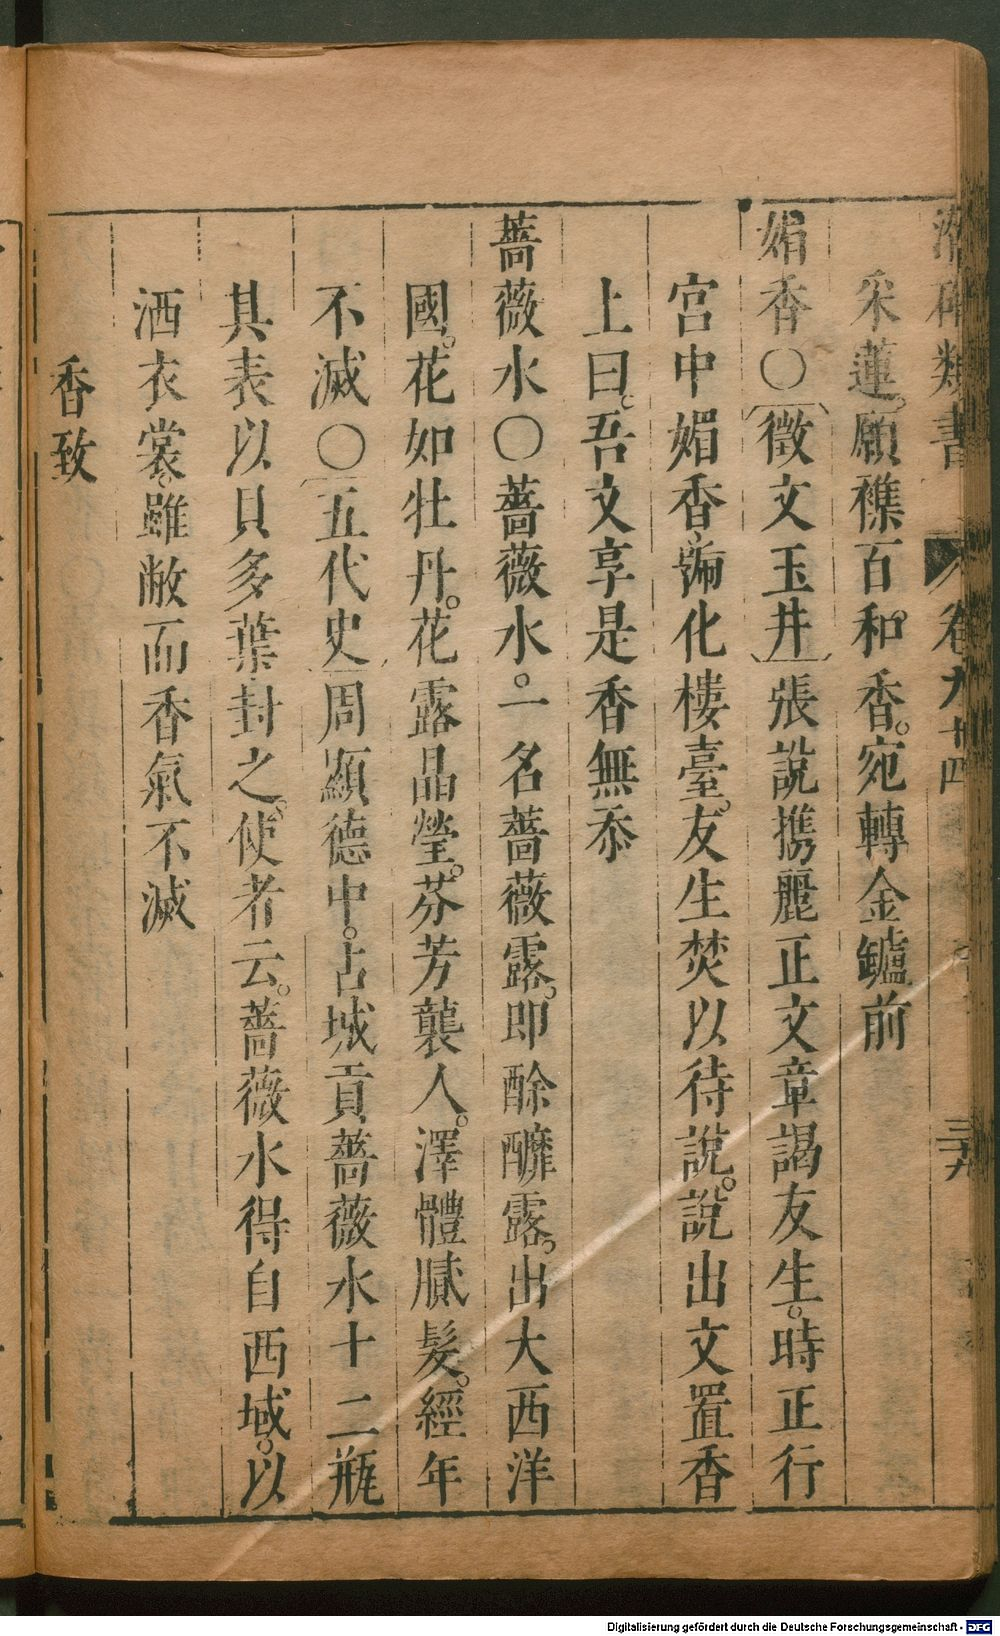 潛確類書 卷九十四 三十九
采蓮願襍百和香宛轉金鑪前
媚香〇徵文玉井張說攜麗正文章謁友生時正行
宮中媚香號化樓臺友生焚以待說說出文置香
上曰吾文享是香無忝
薔薇水〇薔薇水一名薔薇露即酴醿露出大西洋
國花如牡丹花露晶瑩芬芳襲人澤體膩髮經年
不滅〇五代史周顯德中占城貢薔薇水十二瓶
其表以貝多葉封之使者云薔薇水得自西域以
洒衣裳雖敝而香氣不滅
香致
Digitalisierung gefördert durch die Deutsche Forschungsgemeinschaft - DFG